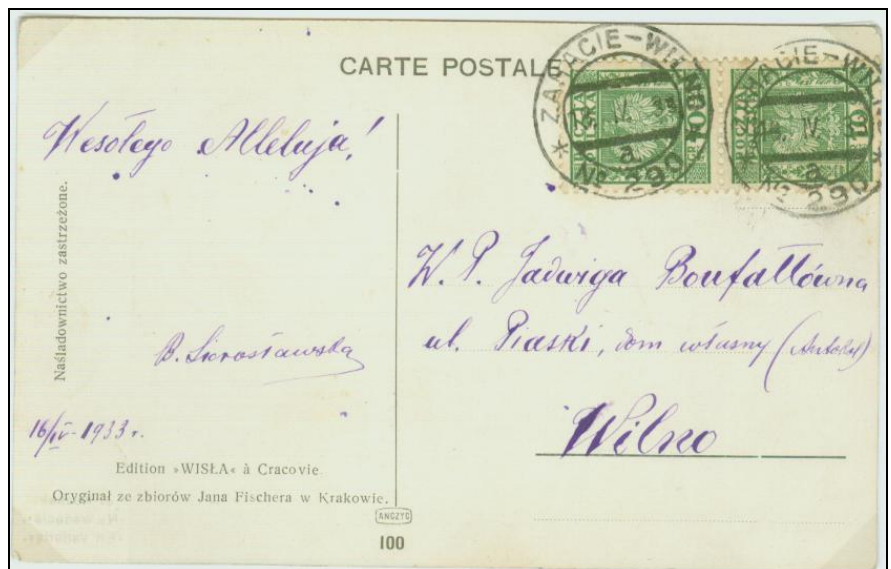 CARTE POSTALE
ZARACIE-WILNO
a
№ 290
ZARACIE-WILNO
a
№ 290
Wesołego Alleluja!
Naśladownictwo zastrzeżone.
16/IV-1933 r.
Edition »WISŁA« à Cracovie.
Oryginał ze zbiorów Jana Fischera w Krakowie.
ANCZYC
100
W. P. Jadwiga Bonfałłówna
ul. Piaski, dom własny
Wilno